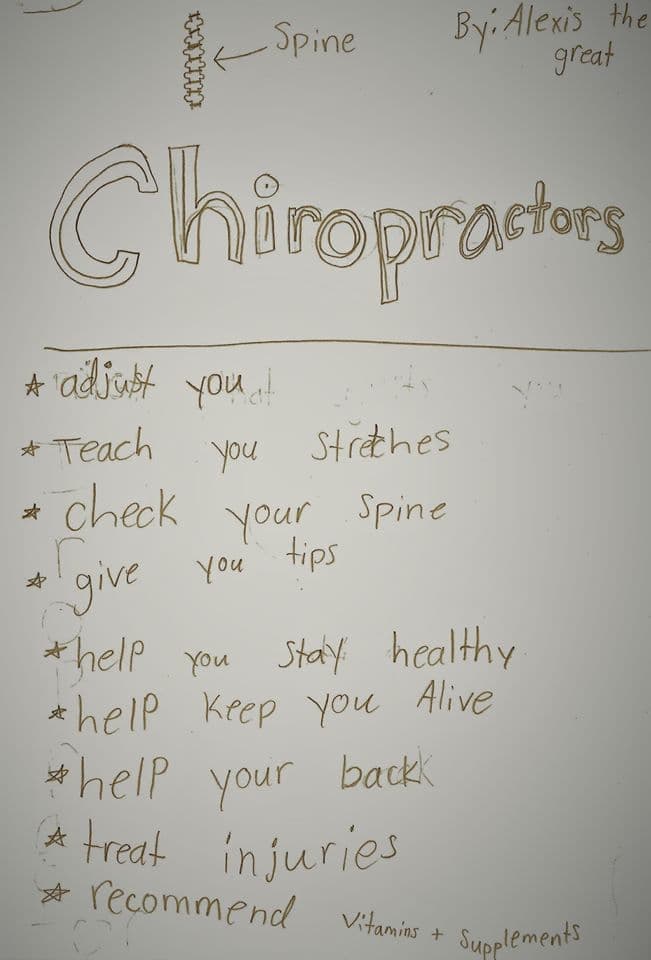 Spine
By: Alexis the
great
Chiropractors
adjust you
Teach you Stretches
check your Spine
give you tips
help you stay healthy
help keep you Alive
help your back
treat injuries
recommend Vitamins + Supplements